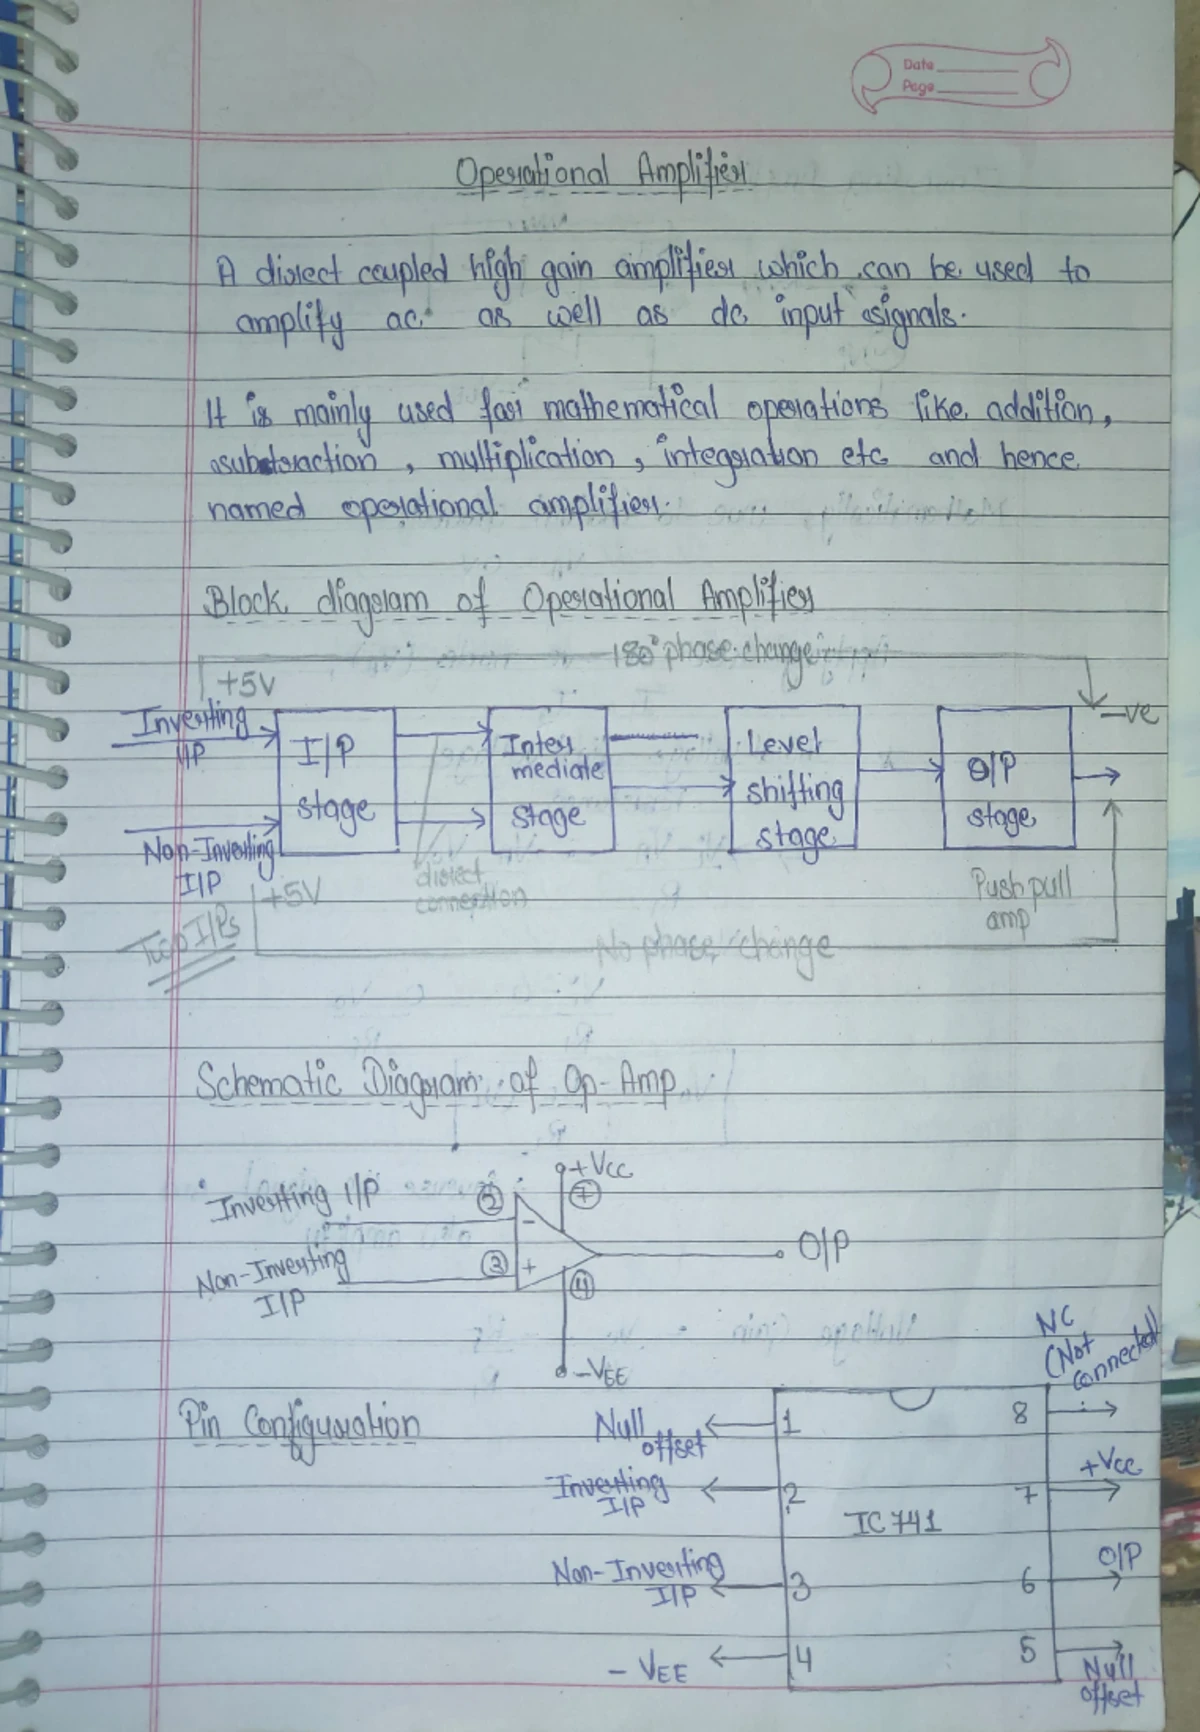 Date
Page
Operational Amplifier
A direct coupled high gain amplifier which can be used to
amplify ac as well as dc input signals.
It is mainly used for mathematical operations like addition,
substraction, multiplication, integration etc and hence
named operational amplifier.
Block diagram of Operational Amplifier
180° phase change
+5V
-ve
Inverting
I/P
I/P
stage
Inter
mediate
stage
Level
shifting
stage
O/P
stage
Non-Inverting
I/P
+5V
direct
connection
Push pull
amp
Two I/Ps
No phase change
Schematic Diagram of Op-Amp
+VCC
Inverting I/P
2
7
-
O/P
Non-Inverting
I/P
3
+
4
-VEE
NC
(Not
connected)
Pin Configuration
Null
offset
1
8
Inverting
I/P
2
7
+Vcc
IC 741
Non-Inverting
I/P
3
6
O/P
- VEE
4
5
Null
offset